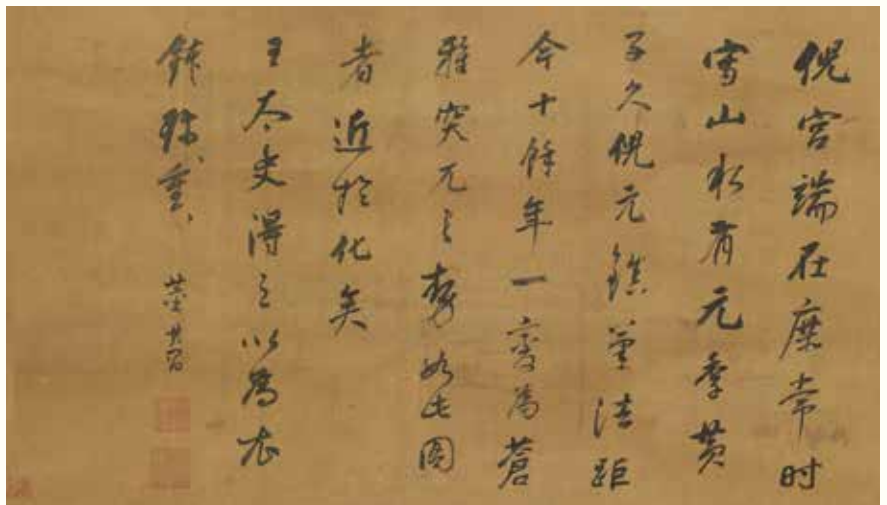 倪宮端在庶常时
寫山水有元季黃
子久倪元鎮筆法距
今十餘年一變為蒼
雅突兀之勢此圖
者近於化矣
王太史得之以為衣
鉢珍重珍重
董其昌